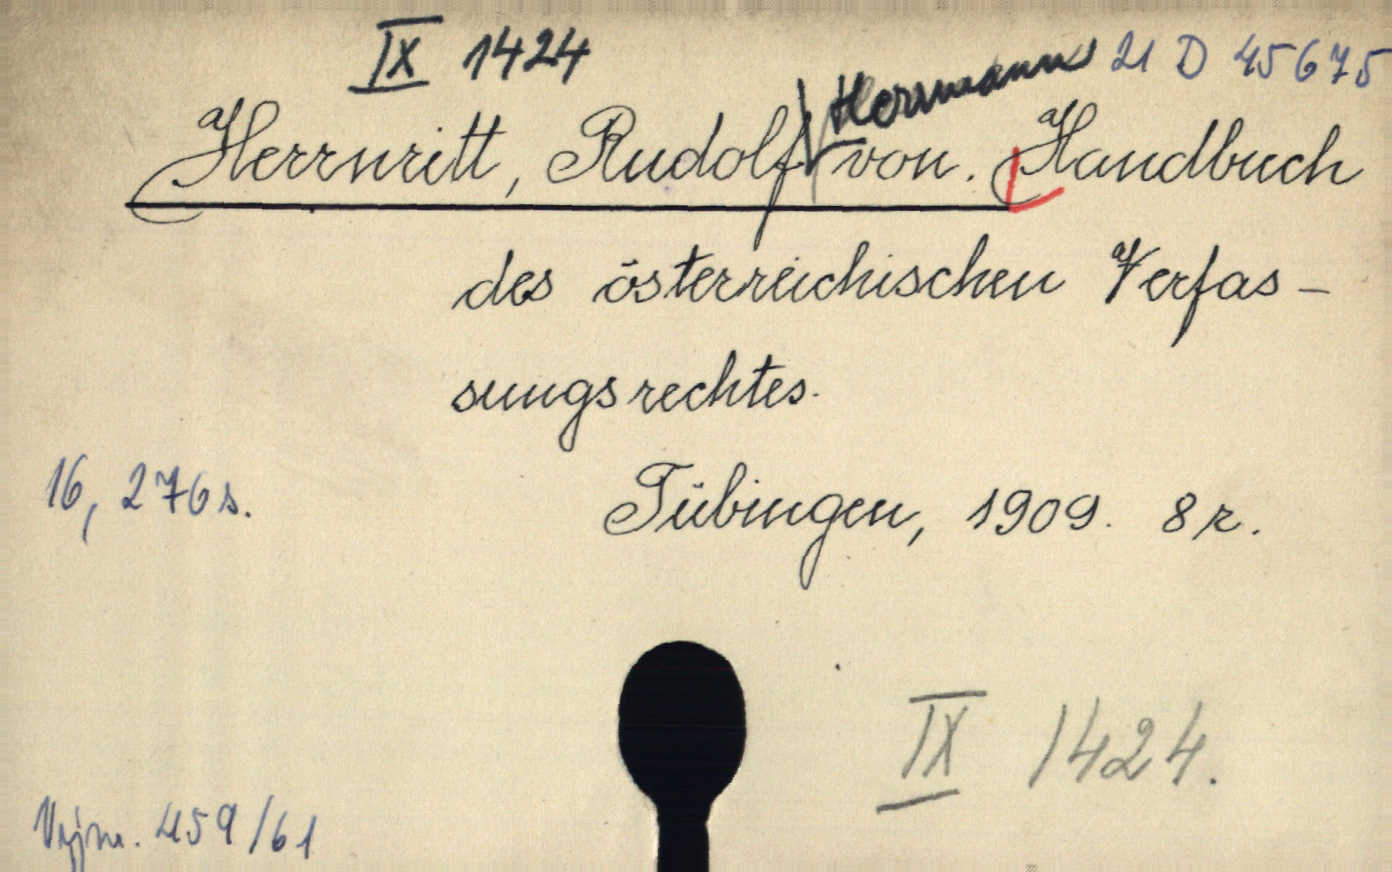 IX 1424
Herrmann 21 D 45675
Herrnritt, Rudolf von. Handbuch
des österreichischen Verfas-
sungsrechtes.
16, 276 s.
Tübingen, 1909. 8r.
IX 1424.
459/61